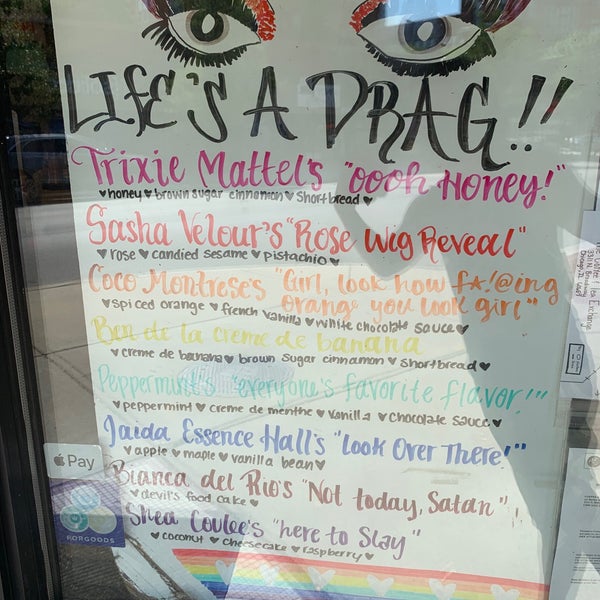 LIFE'S A DRAG!!
Trixie Mattel's "oooh Honey!"
♥honey♥brown sugar cinnamon♥shortbread♥
Sasha Velour's "Rose Wig Reveal"
♥rose♥candied sesame♥pistachio♥
Coco Montrese's "Girl, look how f★!@ing
orange you look girl"
♥spiced orange♥french vanilla♥white chocolate sauce♥
Ben de la creme de banana
♥creme de banana♥brown sugar cinnamon♥shortbread♥
Peppermint's "everyone's favorite flavor!"
♥peppermint♥creme de menthe♥vanilla♥chocolate sauce♥
Jaida Essence Hall's "Look Over There!"
♥apple♥maple♥vanilla bean♥
Bianca del Rio's "Not today, Satan"
♥devil's food cake♥
Shea Coulee's "here to slay"
♥coconut♥cheesecake♥raspberry♥
Pay
FORGOODS